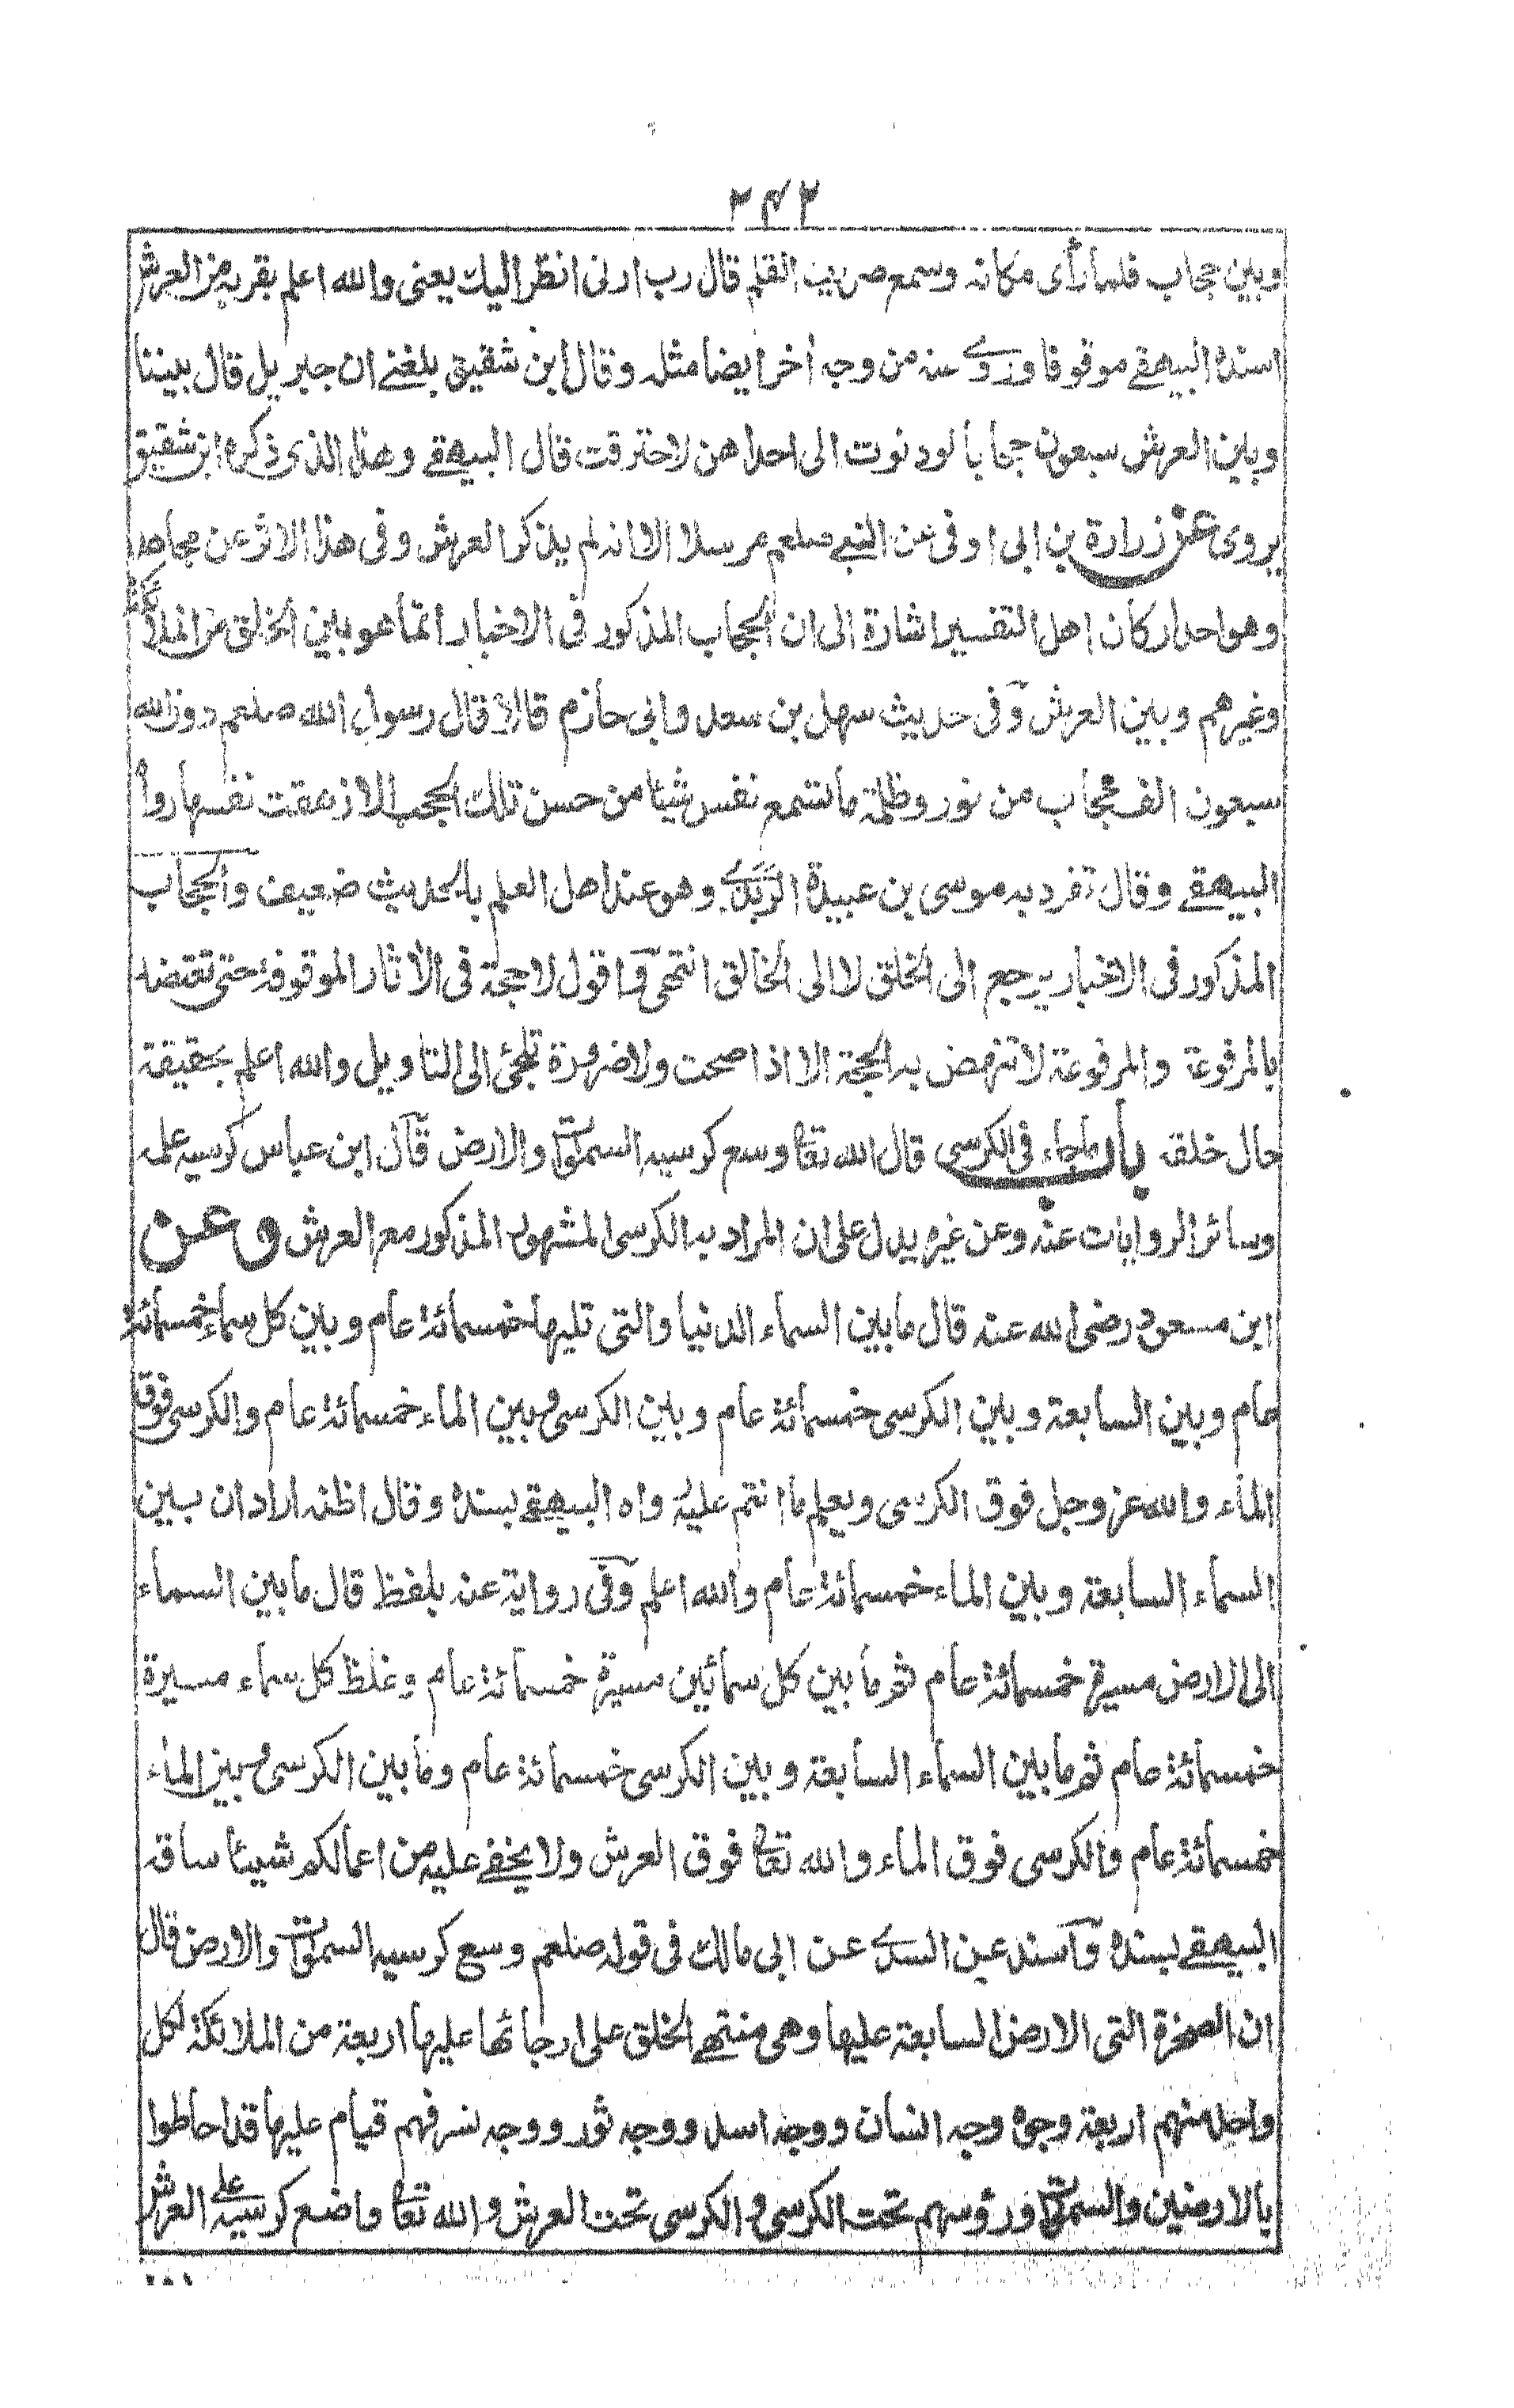 ٢٤٢
وبين حجاب فلما رأى مكانه وسمع صريف القلم قال رب ارنى انظر اليك يعنى والله اعلم بقربه من العرش
اسنده البيهقے موقوفا وروے عنه من وجه اخر ايضا مثله وقال ابن شقيق بلغنے ان جبريل قال بيننا
وبين العرش سبعون حجابا لو دنوت الى احداهن لاحترقت قال البيهقے وهذا الذى ذكره ابن شقيق
يروى عن زرارة بن ابى اوفى عن النبے صلعم مرسلا الا انه لم يذكر العرش وفى هذا الاثر عن مجاهد
وهو احد اركان اهل التفسير اشارة الى ان الحجاب المذكور فى الاخبار انما هو بين الخلق من الملائكة
وغيرهم وبين العرش وفى حديث سهل بن سعد وابى حازم قالا قال رسول الله صلعم دون الله
سبعون الف حجاب من نور وظلمة ما تسمع نفس شيئا من حسن تلك الحجب الا زهقت نفسها رواه
البيهقے وقال تفرد به موسى بن عبيدة الربذے وهو عند اهل العلم بالحديث ضعيف والحجاب
المذكور فى الاخبار يرجع الى الخلق لا الى الخالق انتهى واقول لا حجة فى الاثار الموقوفة حتى تعتضد
بالمرفوعة والمرفوعة لا تنهض به الحجة الا اذا صحت ولا ضرورة تلجئ الى التاويل والله اعلم بحقيقة
حال خلقه باب ما جاء فى الكرسى قال الله تعا وسع كرسيه السموات والارض قال ابن عباس كرسيه علمه
وسائر الروايات عنه وعن غيره يدل على ان المراد به الكرسى المشهور المذكور مع العرش وعن
ابن مسعود رضى الله عنه قال ما بين السماء الدنيا والتى تليها خمسمائة عام وبين كل سماء خمسمائة
عام وبين السابعة وبين الكرسى خمسمائة عام وبين الكرسى وبين الماء خمسمائة عام والكرسى فوق
الماء والله عز وجل فوق الكرسى ويعلم ما انتم عليه رواه البيهقے بسنده وقال اظنه اراد ان بين
السماء السابعة وبين الماء خمسمائة عام والله اعلم وفى رواية عنه بلفظ قال ما بين السماء
الى الارض مسيرة خمسمائة عام ثم ما بين كل سمائين مسيرة خمسمائة عام وغلظ كل سماء مسيرة
خمسمائة عام ثم ما بين السماء السابعة وبين الكرسى خمسمائة عام وما بين الكرسى وبين الماء
خمسمائة عام والكرسى فوق الماء والله تعا فوق العرش ولا يخفے عليه من اعمالكم شيئا ساقه
البيهقے بسنده واسند عن السدے عن ابى مالك فى قوله صلعم وسع كرسيه السموات والارض قال
ان الصخرة التى الارض السابعة عليها وهى منتهے الخلق على ارجائها عليها اربعة من الملائكة لكل
واحد منهم اربعة وجوه وجه انسان ووجه اسد ووجه ثور ووجه نسر فهم قيام عليها قد احاطوا
بالارضين والسموات ورؤسهم تحت الكرسى والكرسى تحت العرش والله تعا واضع كرسيه علے العرش